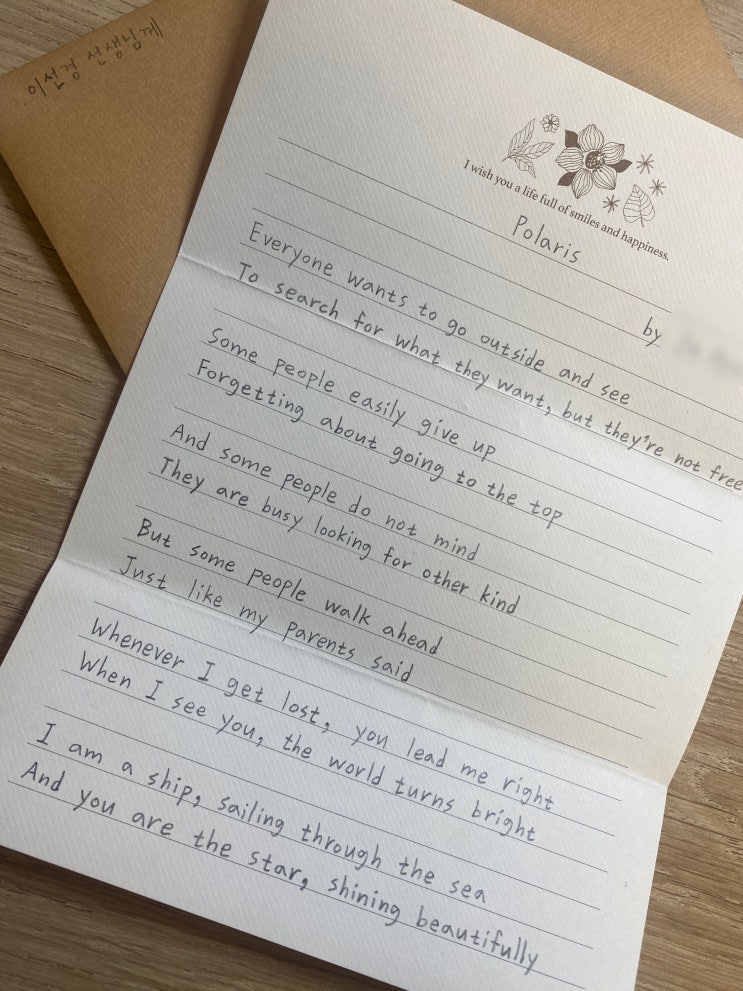 이선경 선생님께
I wish you a life full of smiles and happiness.
Polaris
by
Everyone wants to go outside and see
To search for what they want, but they're not free
Some people easily give up
Forgetting about going to the top
And some people do not mind
They are busy looking for other kind
But some people walk ahead
Just like my parents said
Whenever I get lost, you lead me right
When I see you, the world turns bright
I am a ship, sailing through the sea
And you are the star, shining beautifully